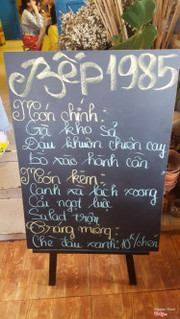 Bếp 1985
Món chính:
Gà kho sả
Đậu khuôn chiên cay
Bò xào hành cần
Món kèm:
Canh xà lách xoong
Cải ngọt luộc
Salad trộn
Tráng miệng:
Chè đậu xanh: 10k/chén